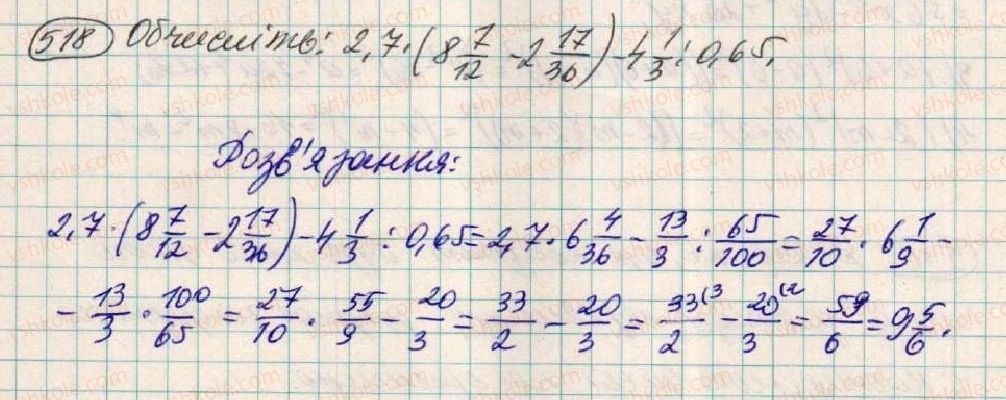 518 Обчисліть: 2,7·(8 7/12 - 2 17/36) - 4 1/3 : 0,65.
Розв'язання:
2,7·(8 7/12 - 2 17/36) - 4 1/3 : 0,65 = 2,7 · 6 4/36 - 13/3 : 65/100 = 27/10 · 6 1/9 -
- 13/3 · 100/65 = 27/10 · 55/9 - 20/3 = 33/2 - 20/3 = 33(3/2 - 20(2/3 = 59/6 = 9 5/6.